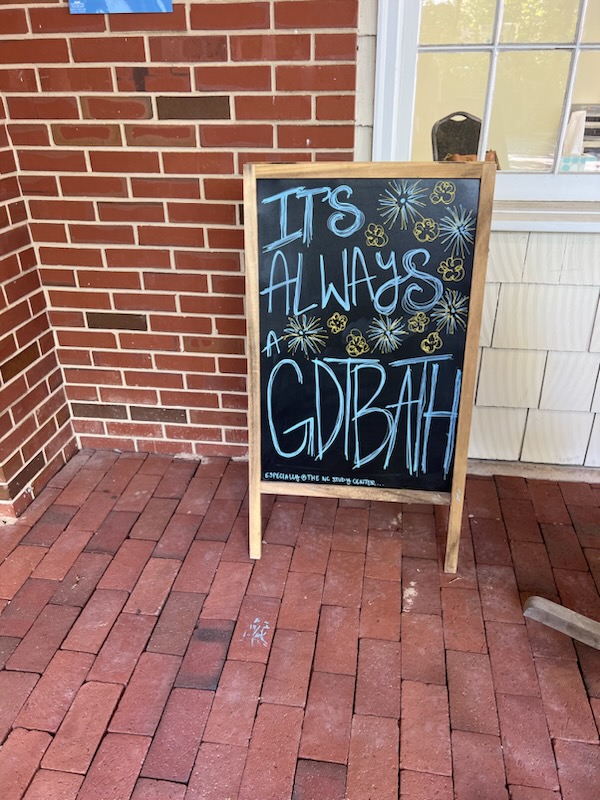 IT'S
ALWAYS
A
GDTBATH
ESPECIALLY @ THE NC STUDY CENTER...